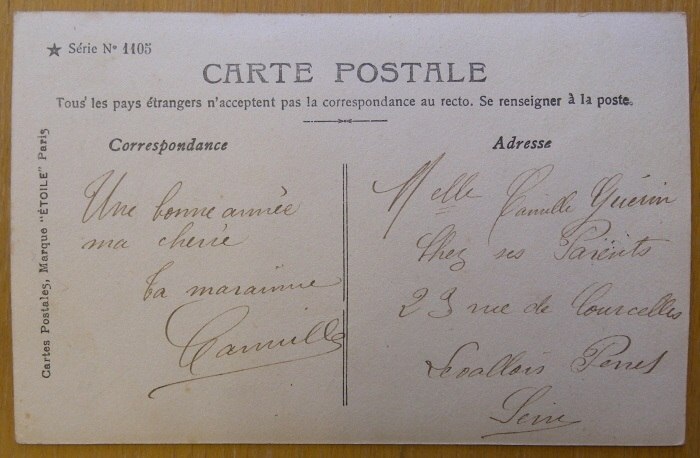 ★ Série Nº 1105
CARTE POSTALE
Tous les pays étrangers n'acceptent pas la correspondance au recto. Se renseigner à la poste.
Correspondance
Une bonne année
ma cherie
ta marainne
Camille
Adresse
Melle Camille Guérin
Chez ses Parents
23 rue de Courcelles
Levallois Perret
Seine
Cartes Postales, Marque "ÉTOILE" Paris